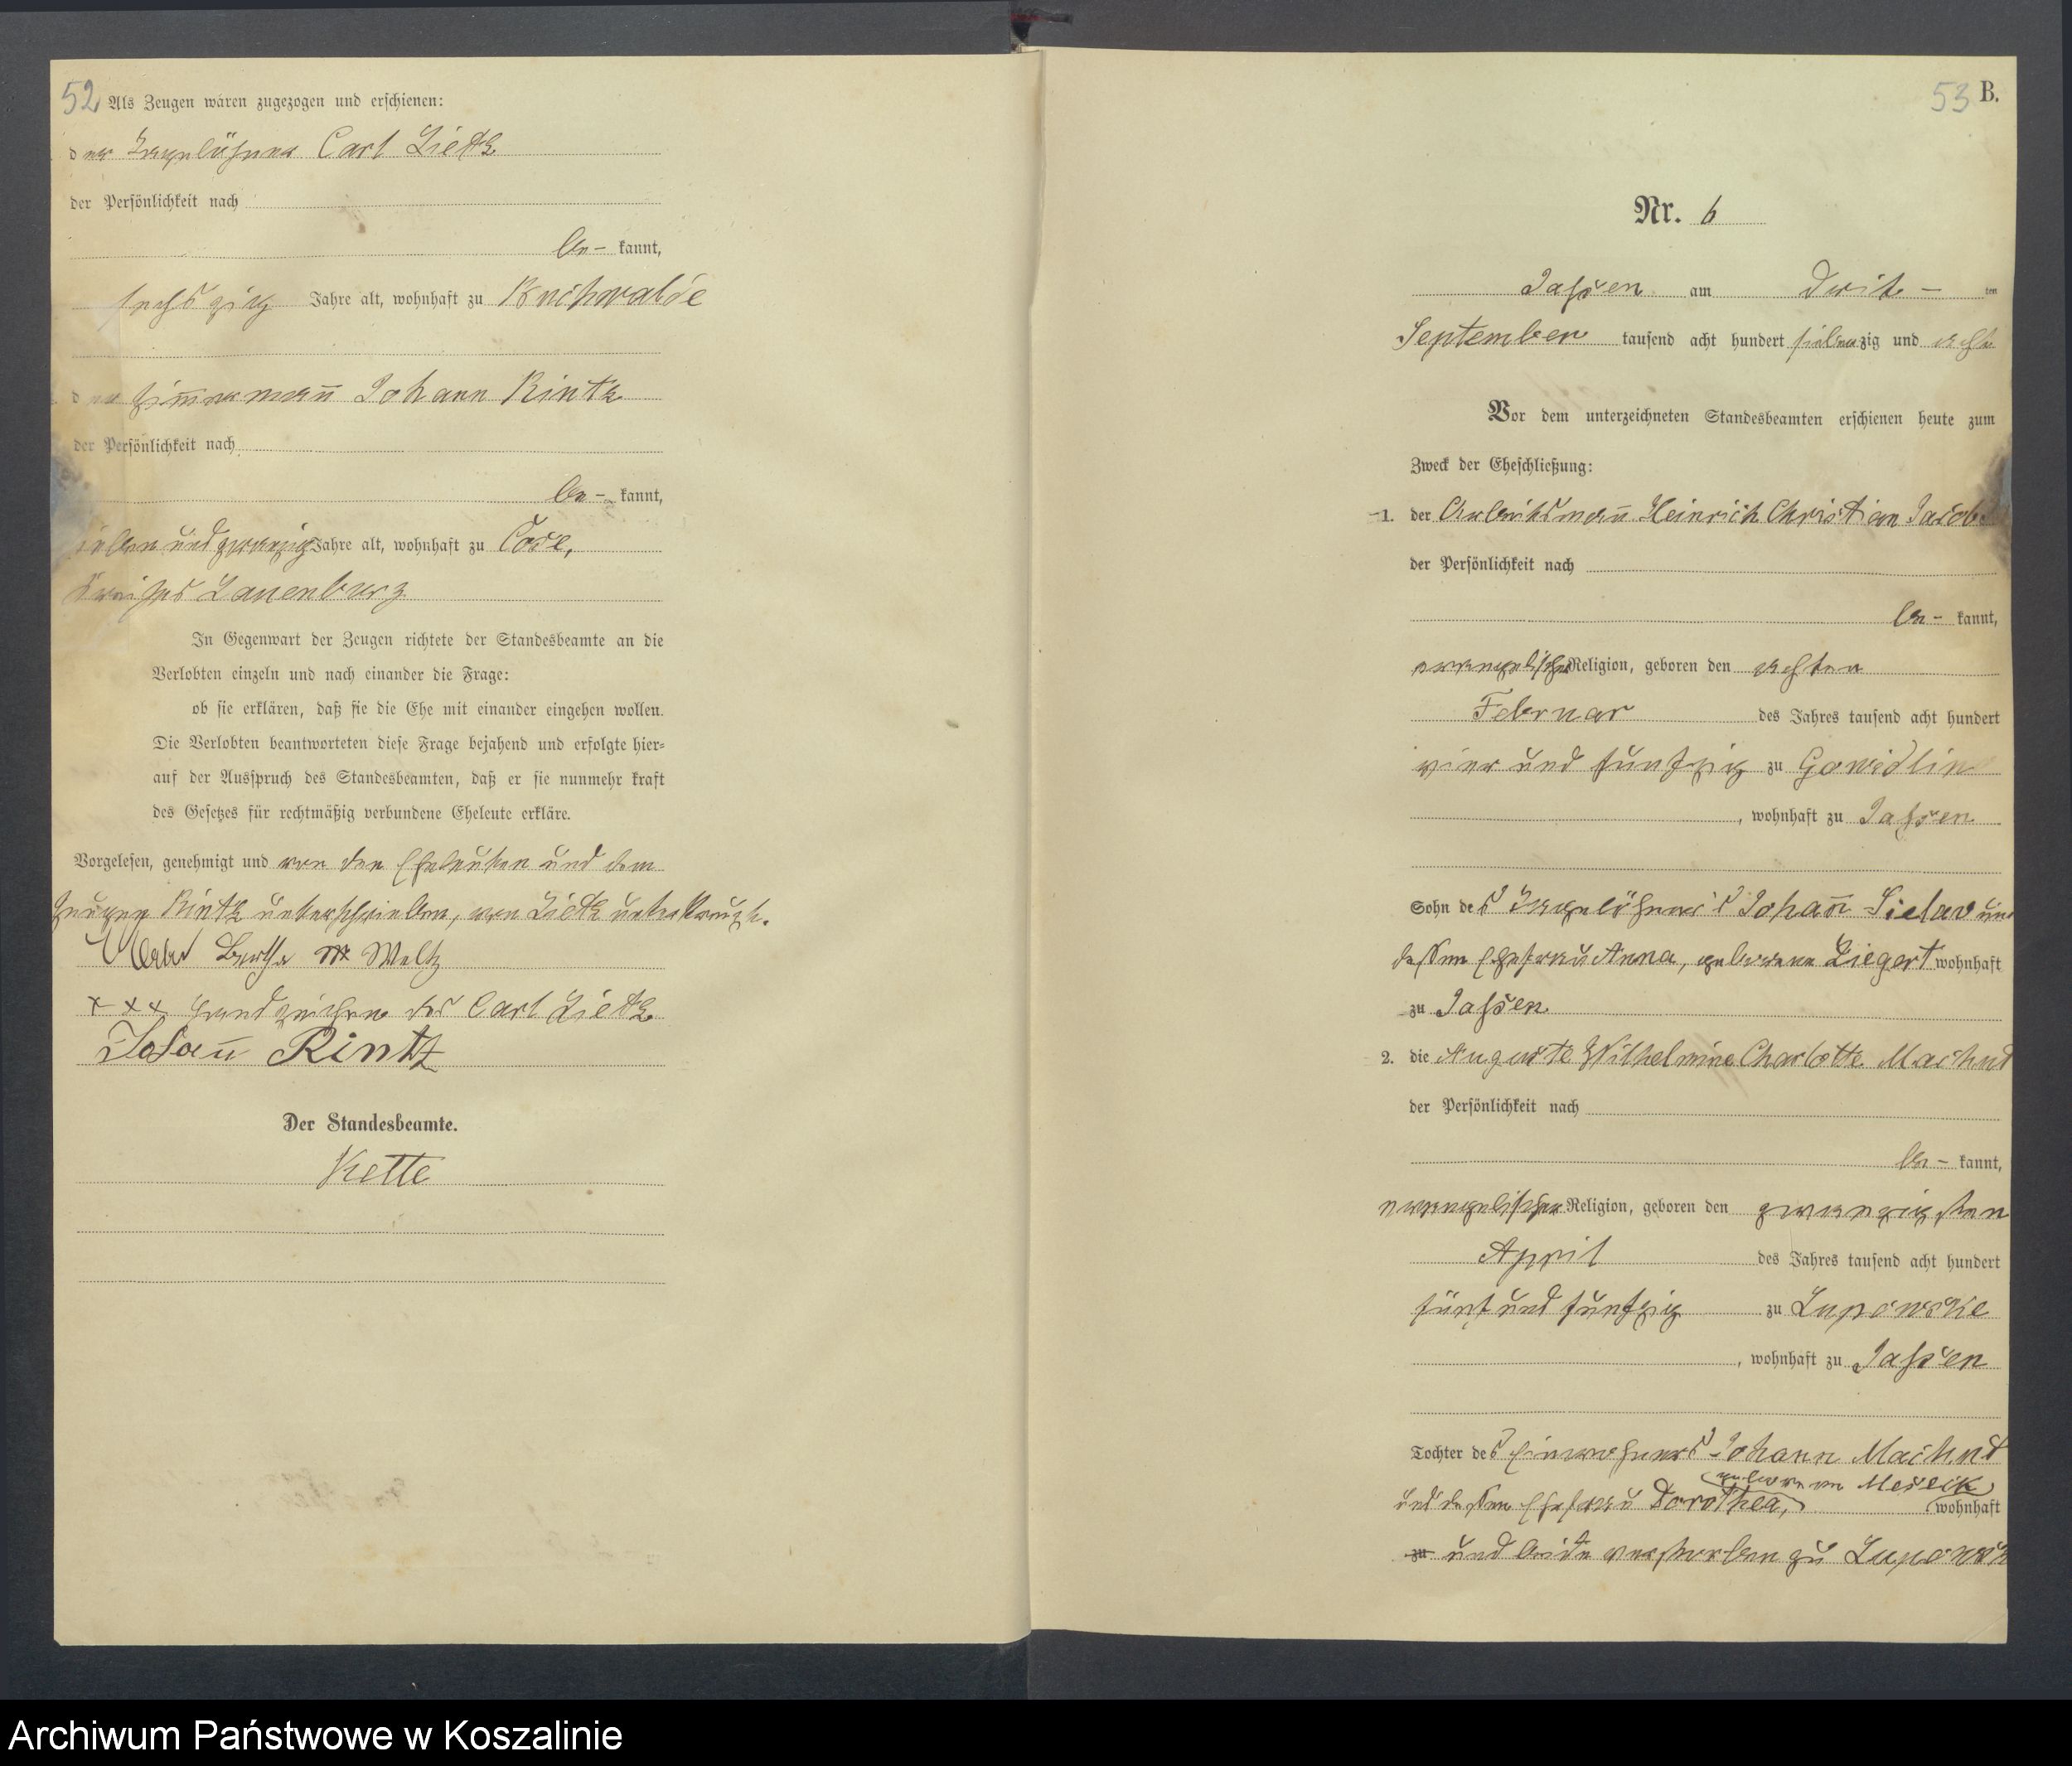 52
Als Zeugen waren zugezogen und erschienen:
der Tagelöhner Carl Lietz
der Persönlichkeit nach
be- kannt,
sechszig Jahre alt, wohnhaft zu Buchwalde
der Zimmermañ Johann Rintz
der Persönlichkeit nach
be- kannt,
sieben und zwanzig Jahre alt, wohnhaft zu Cose,
Kreises Lauenburg
In Gegenwart der Zeugen richtete der Standesbeamte an die
Verlobten einzeln und nach einander die Frage:
ob sie erklären, daß sie die Ehe mit einander eingehen wollen.
Die Verlobten beantworteten diese Frage bejahend und erfolgte hier-
auf der Ausspruch des Standesbeamten, daß er sie nunmehr kraft
des Gesetzes für rechtmäßig verbundene Eheleute erkläre.
Vorgelesen, genehmigt und von den Eheleuten und dem
Zeugen Rintz unterschrieben, von Lietz unterkreuzt.
Bertha Meltz
+++ Handzeichen des Carl Lietz
Johañ Rintz
Der Standesbeamte.
Kette
53 B.
Nr. 6
Jassen am drit- ten
September tausend acht hundert siebenzig und acht
Vor dem unterzeichneten Standesbeamten erschienen heute zum
Zweck der Eheschließung:
1. der Arbeitsmañ Heinrich Christian Jacob
der Persönlichkeit nach
be- kannt,
evangelischer Religion, geboren den achten
Februar des Jahres tausend acht hundert
vier und funfzig zu Gowidlin
, wohnhaft zu Jassen
Sohn des Tagelöhners Johañ Sielav und
dessen Ehefrau Anna, geborene Ziegert wohnhaft
zu Jassen
2. die Auguste Wilhelmine Charlotte Machut
der Persönlichkeit nach
be- kannt,
evangelischer Religion, geboren den zwanzigsten
April des Jahres tausend acht hundert
fünf und funfzig zu Lupowske
, wohnhaft zu Jassen
Tochter des Einwohners Johann Machut
geborenen Meseik
und dessen Ehefrau Dorothea, wohnhaft
zu und beide verstorben zu Lupowsk
Archiwum Państwowe w Koszalinie